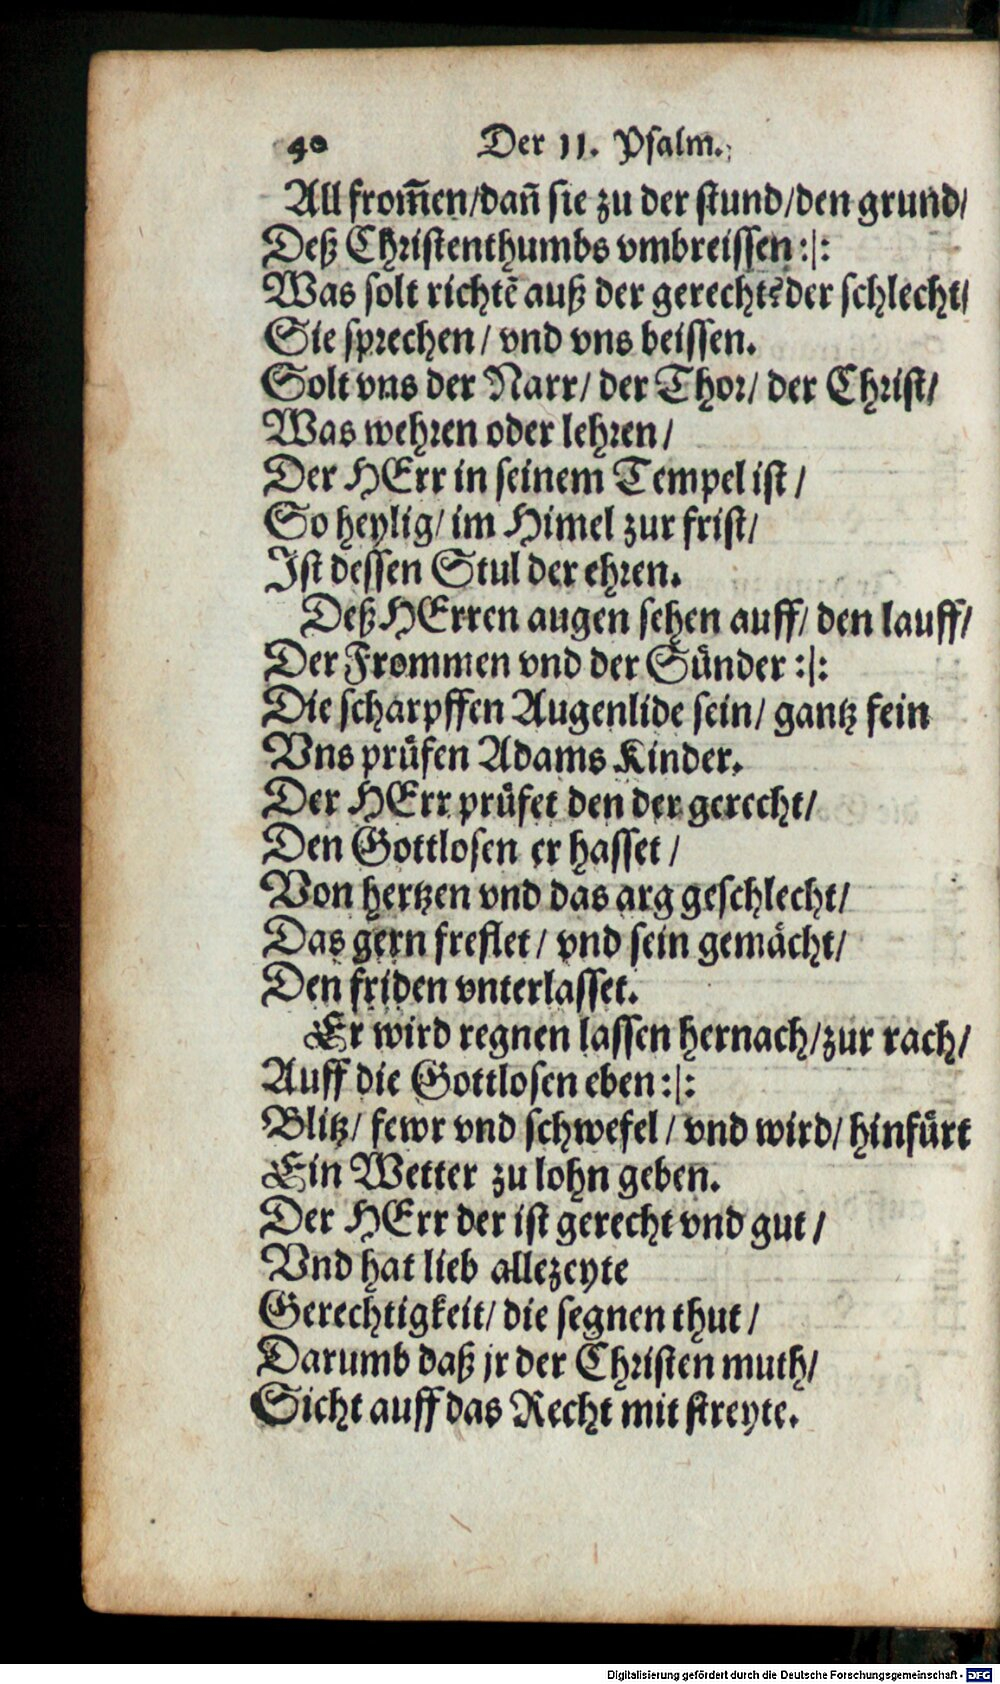 40 Der 11. Psalm.
All from̃en/dañ sie zu der stund/den grund/
Deß Christenthumbs vmbreissen :|:
Was solt richtẽ auß der gerecht?der schlecht/
Sie sprechen / vnd vns beissen.
Solt vns der Narr/ der Thor/ der Christ/
Was wehren oder lehren /
Der HErr in seinem Tempel ist /
So heylig/ im Himel zur frist/
Ist dessen Stul der ehren.
Deß HErren augen sehen auff/ den lauff/
Der Frommen vnd der Sünder :|:
Die scharpffen Augenlide sein/ gantz fein
Vns prüfen Adams Kinder.
Der HErr prüfet den der gerecht/
Den Gottlosen er hasset /
Von hertzen vnd das arg geschlecht/
Das gern freflet / vnd sein gemächt/
Den friden vnterlasset.
Er wird regnen lassen hernach/zur rach/
Auff die Gottlosen eben :|:
Blitz/ fewr vnd schwefel / vnd wird/ hinfürt
Ein Wetter zu lohn geben.
Der HErr der ist gerecht vnd gut /
Vnd hat lieb allezeyte
Gerechtigkeit/ die segnen thut /
Darumb daß jr der Christen muth/
Sicht auff das Recht mit streyte.
Digitalisierung gefördert durch die Deutsche Forschungsgemeinschaft - DFG